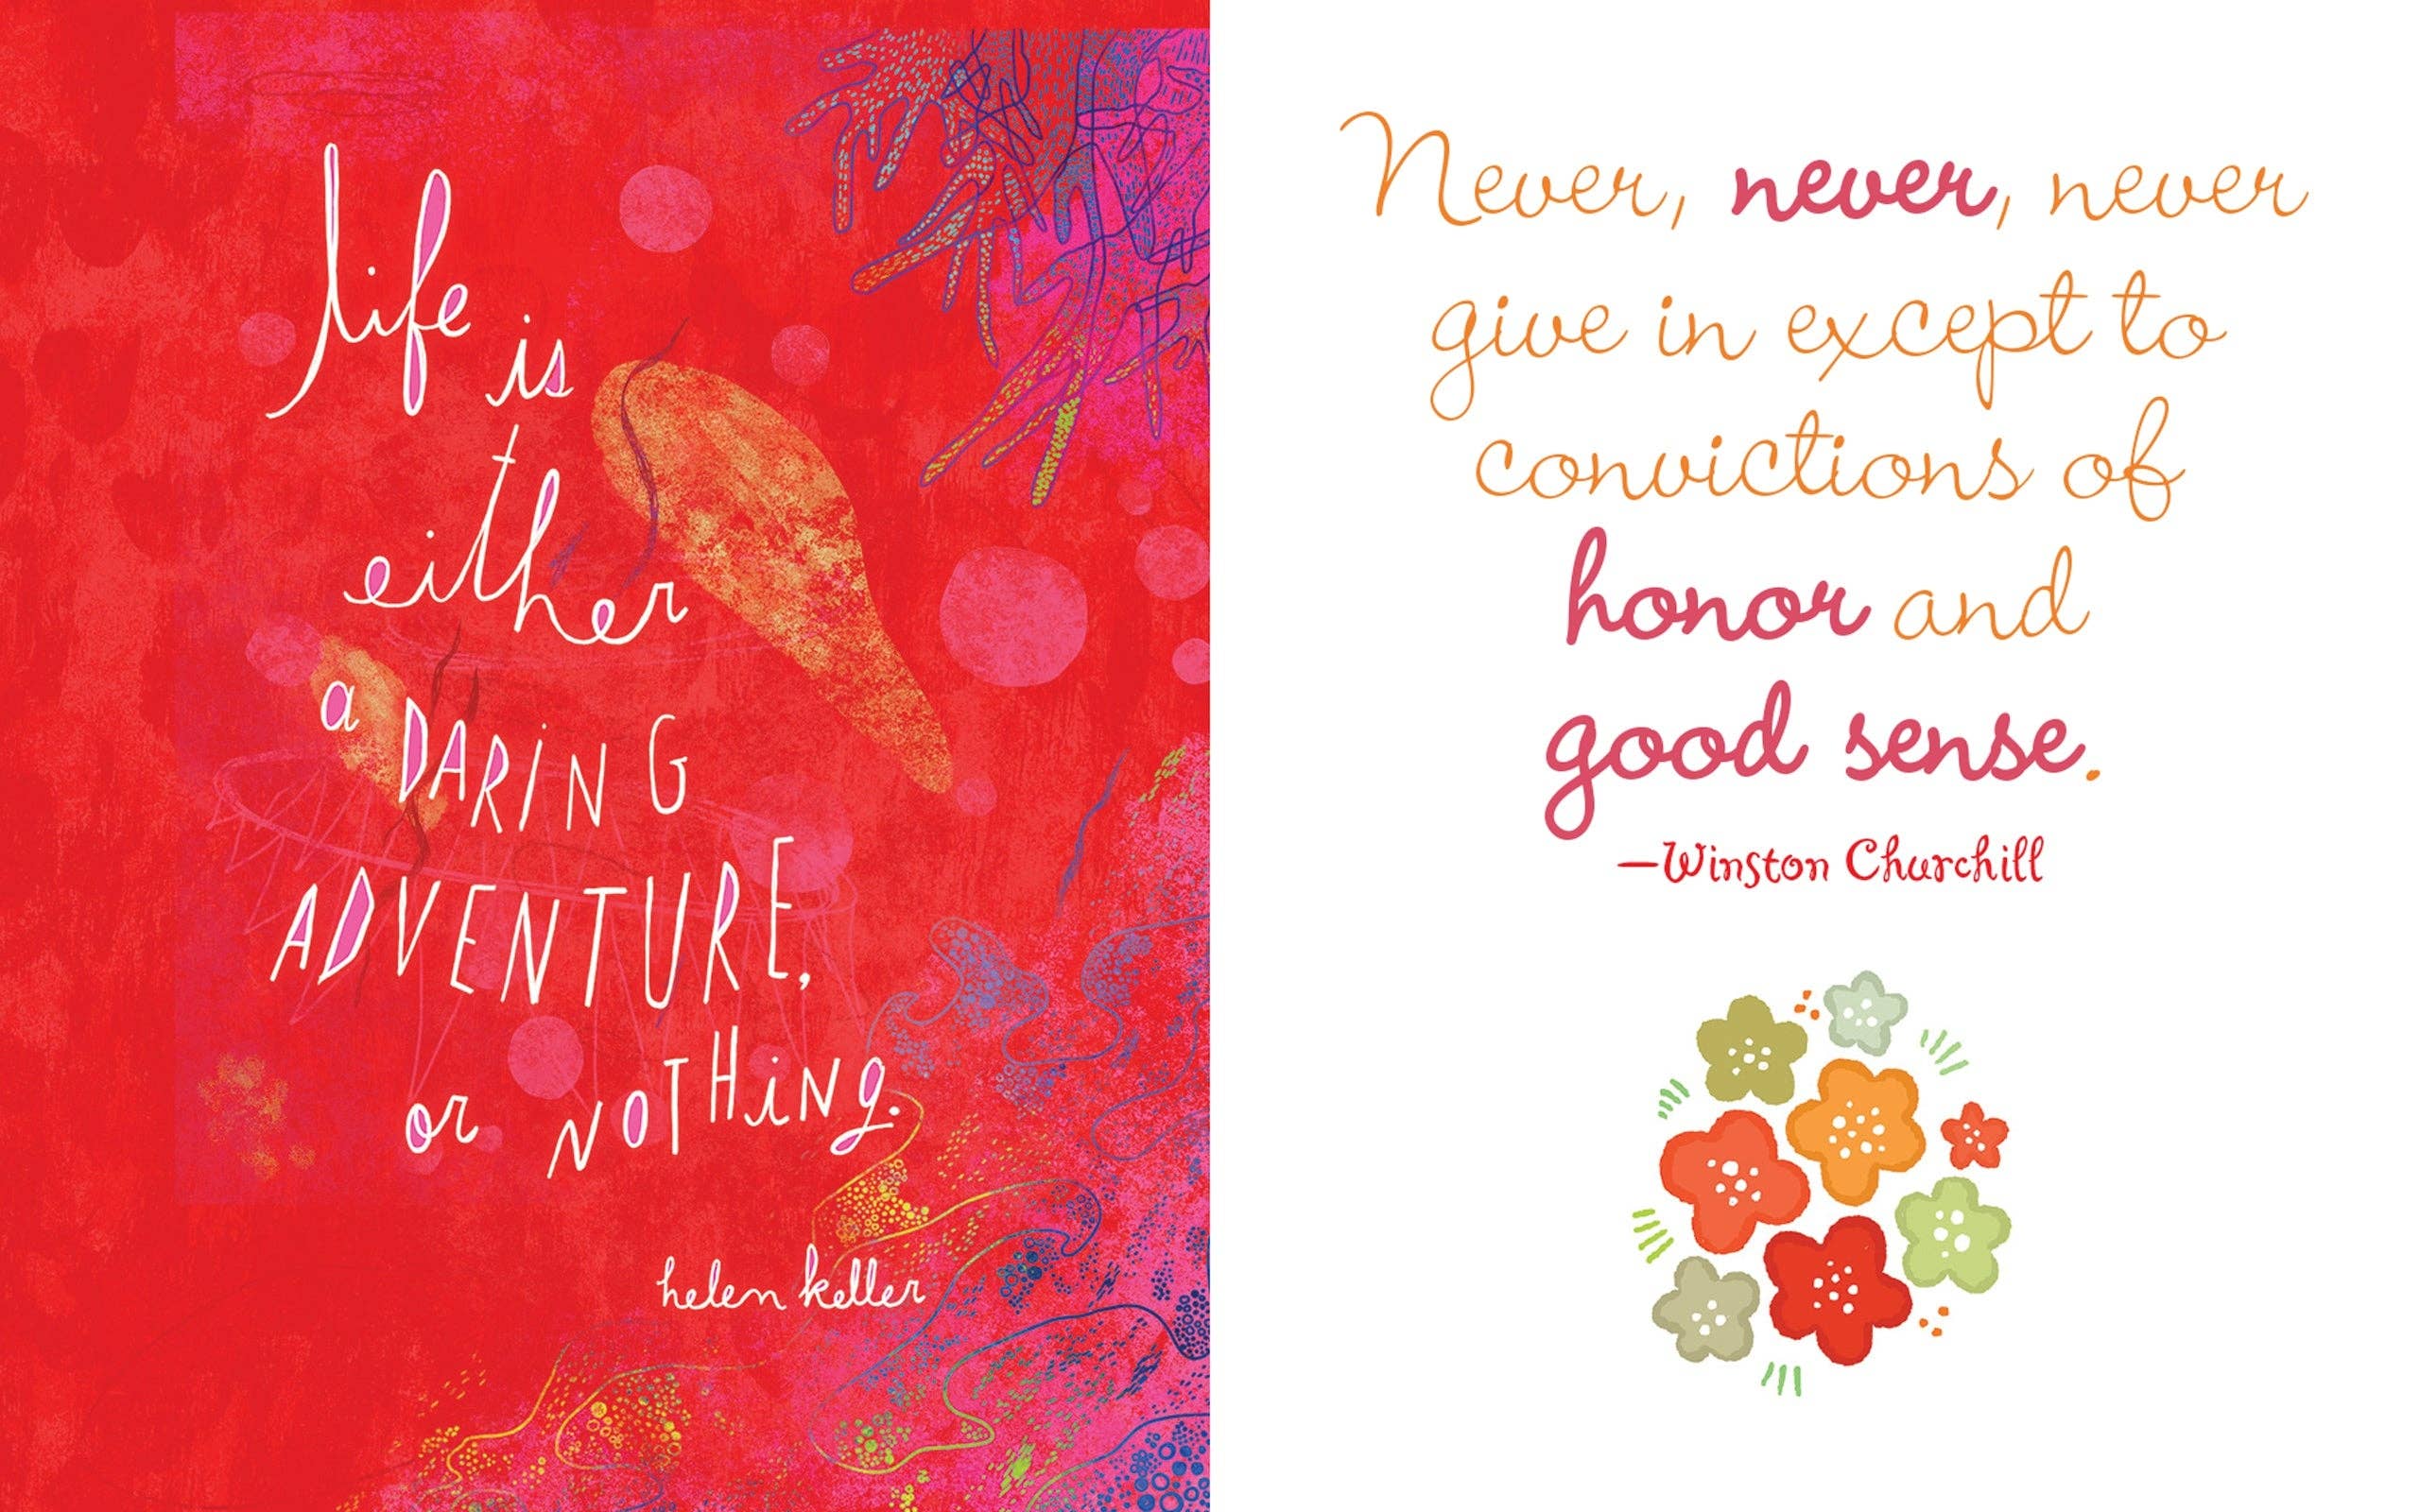 life is
either
a DARiNG
ADVENTURE,
or NOTHiNg.
helen keller
Never, never, never
give in except to
convictions of
honor and
good sense.
—Winston Churchill